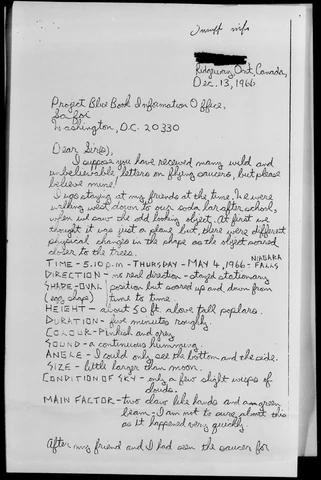 Insuff info
Ridgeway, Ont, Canada,
Dec. 13, 1966
Project Blue Book Information Office,
Washington, D.C. 20330
Dear Sir(s),
I suppose you have received many wild and
unbelievable letters on flying saucers, but please
believe mine!
I was staying at my friends at the time. We were
walking west down to our soda bar after school,
when we saw the odd looking object. At first we
thought it was just a plane but, there were different
physical changes in the shape as the object soared
closer to the trees.
TIME - 5:10 p.m - THURSDAY - MAY 4, 1966 - NIAGARA FALLS
DIRECTION - no real direction - stayed stationary
SHAPE - OVAL position but soared up and down from
(egg shape) time to time.
HEIGHT - about 50 ft. above tall poplars.
DURATION - five minutes roughly.
COLOUR - Pinkish and grey
SOUND - a continuous humming.
ANGLE - I could only see the bottom and the side.
SIZE - little larger than moon.
CONDITION OF SKY - only a few slight wisps of
clouds.
MAIN FACTOR - two claw like hands and a green
beam - I am not to sure about this
as it happened very quickly.
After my friend and I had seen the saucer for